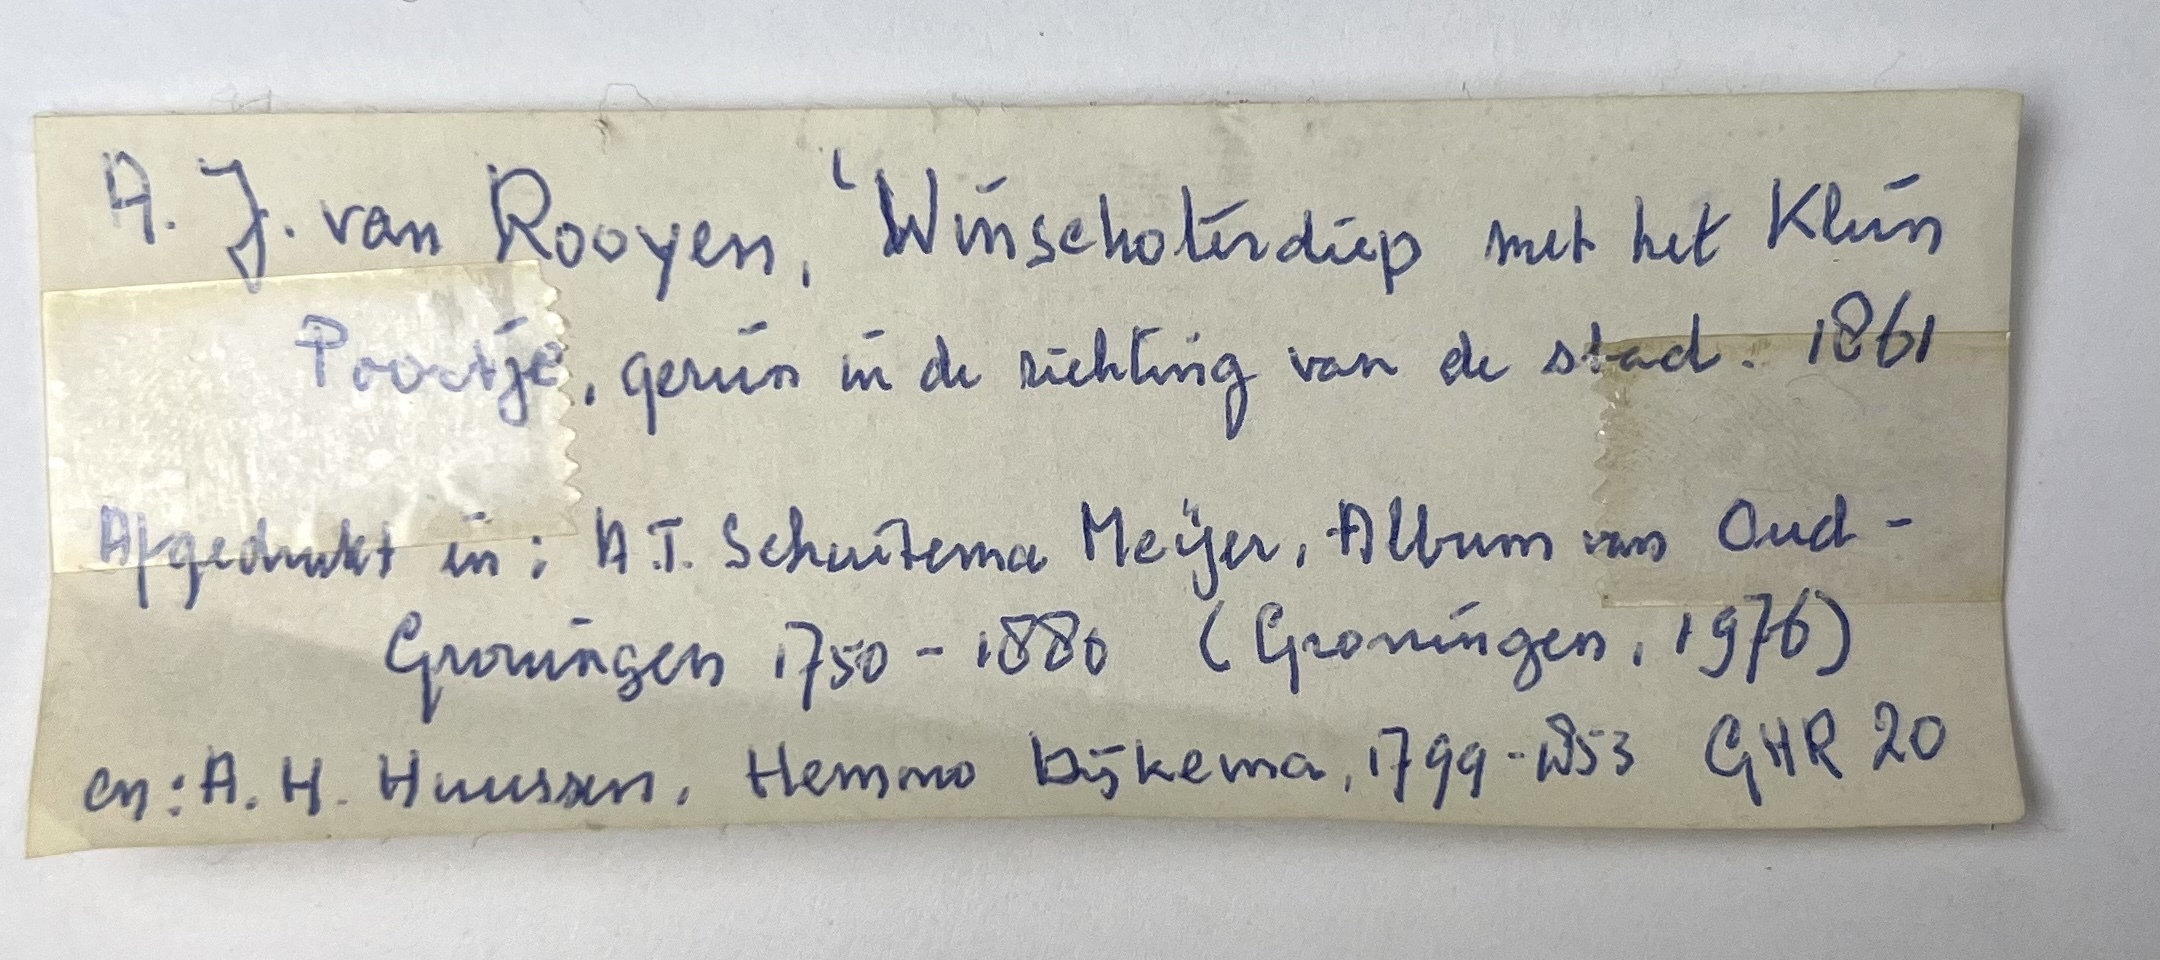 A. J. van Rooyen, 'Winschoterdiep met het Klein
Poortje, gezien in de richting van de stad. 1861
Afgedrukt in: A.T. Schuitema Meijer, Album van Oud-
Groningen 1750-1880 (Groningen, 1976)
en: A. H. Huussen, Hemmo Dijkema, 1799-1853 GHR 20